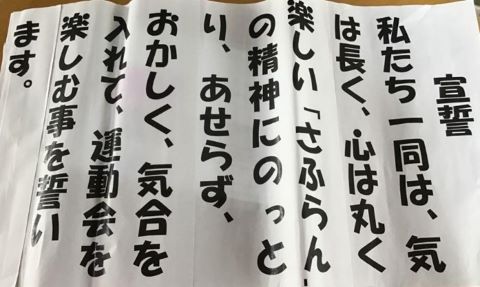 宣誓
私たち一同は、気
は長く、心は丸く
楽しい「さふらん」
の精神にのっと
り、あせらず、
おかしく、気合を
入れて、運動会を
楽しむ事を誓い
ます。